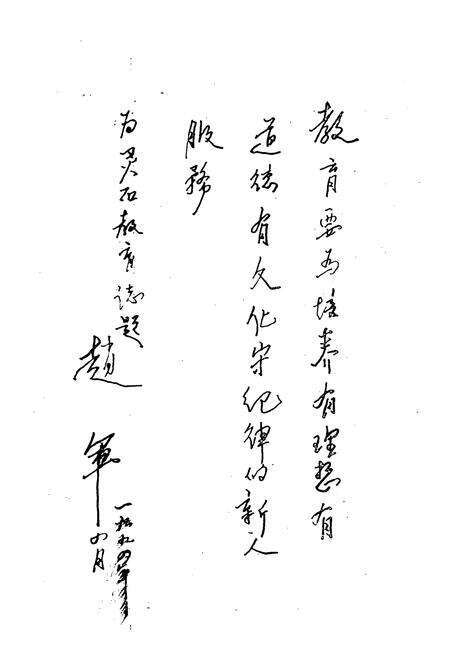 教育要为培养有理想有
道德有文化守纪律的新人
服務
为灵石教育志题
趙軍
一九九四年
四月